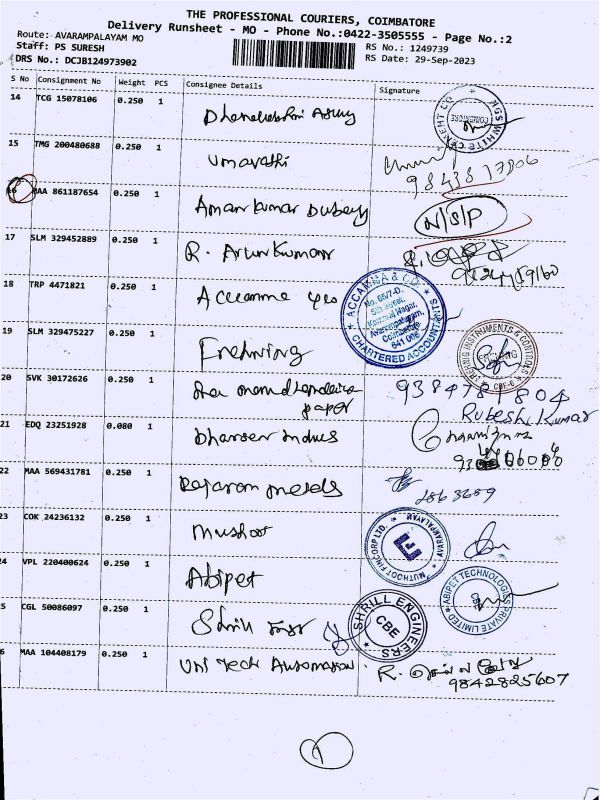 THE PROFESSIONAL COURIERS, COIMBATORE
Delivery Runsheet - MO - Phone No.:0422-3505555 - Page No.:2
Route: AVARAMPALAYAM MO
Staff: PS SURESH
DRS No.: DCJB124973902
RS No.: 1249739
RS Date: 29-Sep-2023
S No Consignment No Weight PCS Consignee Details Signature
14 TCG 15078106 0.250 1
NGS WHITE CEMENT CO COIMBATORE
15 TMG 200480688 0.250 1 Umavathi
98438 17806
16 MAA 861187654 0.250 1 Aman Kumar Dubey N/S/P
17 SLM 329452889 0.250 1 R. Arun Kumar
18 TRP 4471821 0.250 1
ACCANNA & CO.
No. 65/7-D,
5th Street,
Avarampalayam,
Coimbatore
641 006
CHARTERED ACCOUNTANTS
19 SLM 329475227 0.250 1
INSTRUMENTS & CONTROLS
CBE-6
20 SVK 30172626 0.250 1 paper
9384781804
Rubesh Kumar
21 EDQ 23251928 0.080 1
22 MAA 569431781 0.250 1 Rajaram metals
2863689
23 COK 24236132 0.250 1 Muthoot
MUTHOOT FINCORP LTD. AVARAMPALAYAM
24 VPL 220400624 0.250 1 Abipet
ABIPET TECHNOLOGIES PRIVATE LIMITED
25 CGL 50086097 0.250 1 Shrill
SHRILL ENGINEERS CBE
26 MAA 104408179 0.250 1 Uni Tech Automation
9842825607